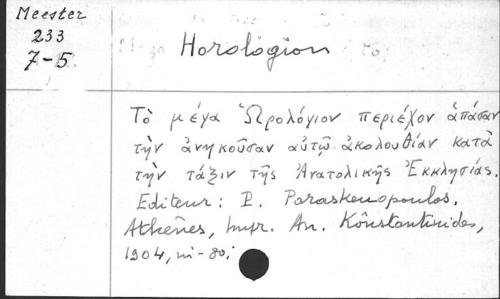 Meester
233
7-5
Horológion
Τὸ μέγα Ὡρολόγιον περιέχον ἁπάσαν
τὴν ἀνηκοῦσαν αὐτῷ ἀκολουθίαν κατὰ
τὴν τάξιν τῆς Ἀνατολικῆς Ἐκκλησίας.
Editeur: P. Paraskeuopoulos.
Athènes, Impr. An. Kônstantinides,
1904, in-80;